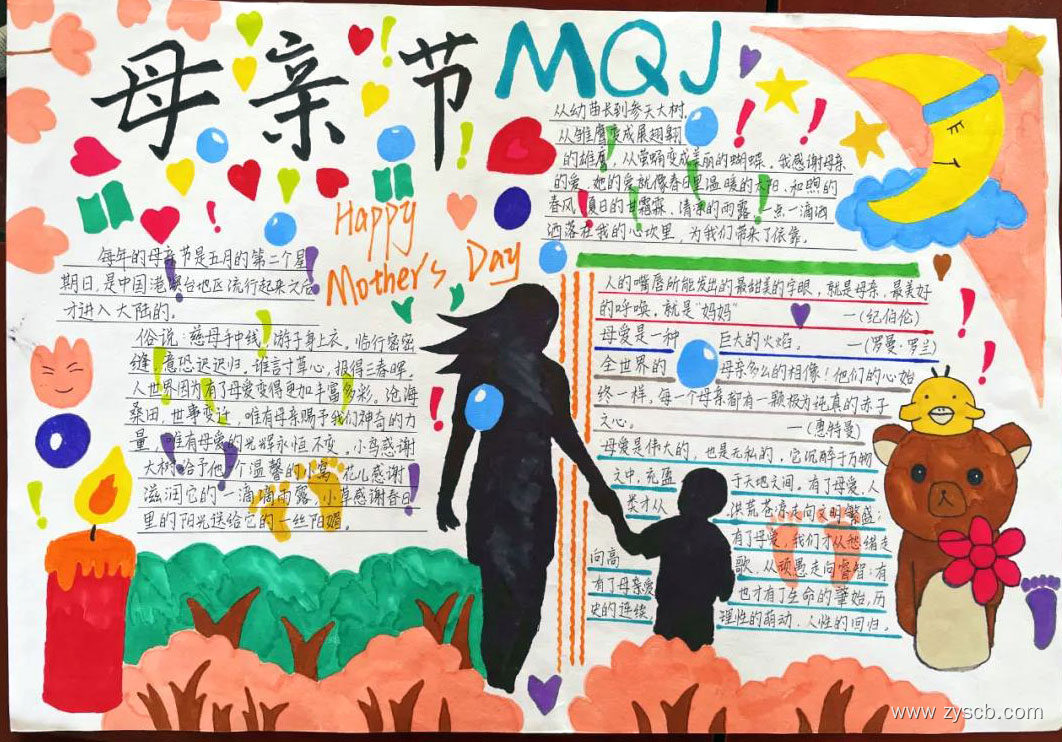 母亲节
MQJ
Happy
Mother's Day
从幼苗长到参天大树.
从雏鹰变成展翅翱
的雄鹰，从茧蛹变成美丽的蝴蝶，我感谢母亲
的爱，她的爱就像春日里温暖的太阳，和煦的
春风，夏日的甘霜霖，清凉的雨露，一点一滴洒
洒落在我的心坎里，为我们带来了依靠。
每年的母亲节是五月的第二个星
期日，是中国港澳台地区流行起来之后
才进入大陆的。
俗说：慈母手中线，游子身上衣。临行密密
缝，意恐迟迟归，谁言寸草心，报得三春晖。
人世界因为有了母爱变得更加丰富多彩。沧海
桑田，世事变迁，唯有母亲赐予我们神奇的力
量，唯有母爱的光辉永恒不变。小鸟感谢
大树给予他一个温馨的小窝，花儿感谢
滋润它的一滴滴雨露，小草感谢春日
里的阳光送给它的一丝阳媚。
人的嘴唇所能发出的最甜美的字眼，就是母亲，最美好
的呼唤，就是“妈妈”　—(纪伯伦)
母爱是一种　巨大的火焰。　—(罗曼·罗兰)
全世界的　母亲多么的相像！他们的心始
终一样，每一个母亲都有一颗极为纯真的赤子
之心。　—(惠特曼)
母爱是伟大的，也是无私的，它沉醉于万物
之中，充盈　于天地之间，有了母爱，人
类才从　洪荒苍凉走向文明繁盛；
有了母爱，我们才从愁绪走
向高　歌，从顽愚走向睿智；有
有了母亲爱　也才有了生命的肇始，历
史的连续，　理性的萌动，人性的回归。
www.zyscb.com